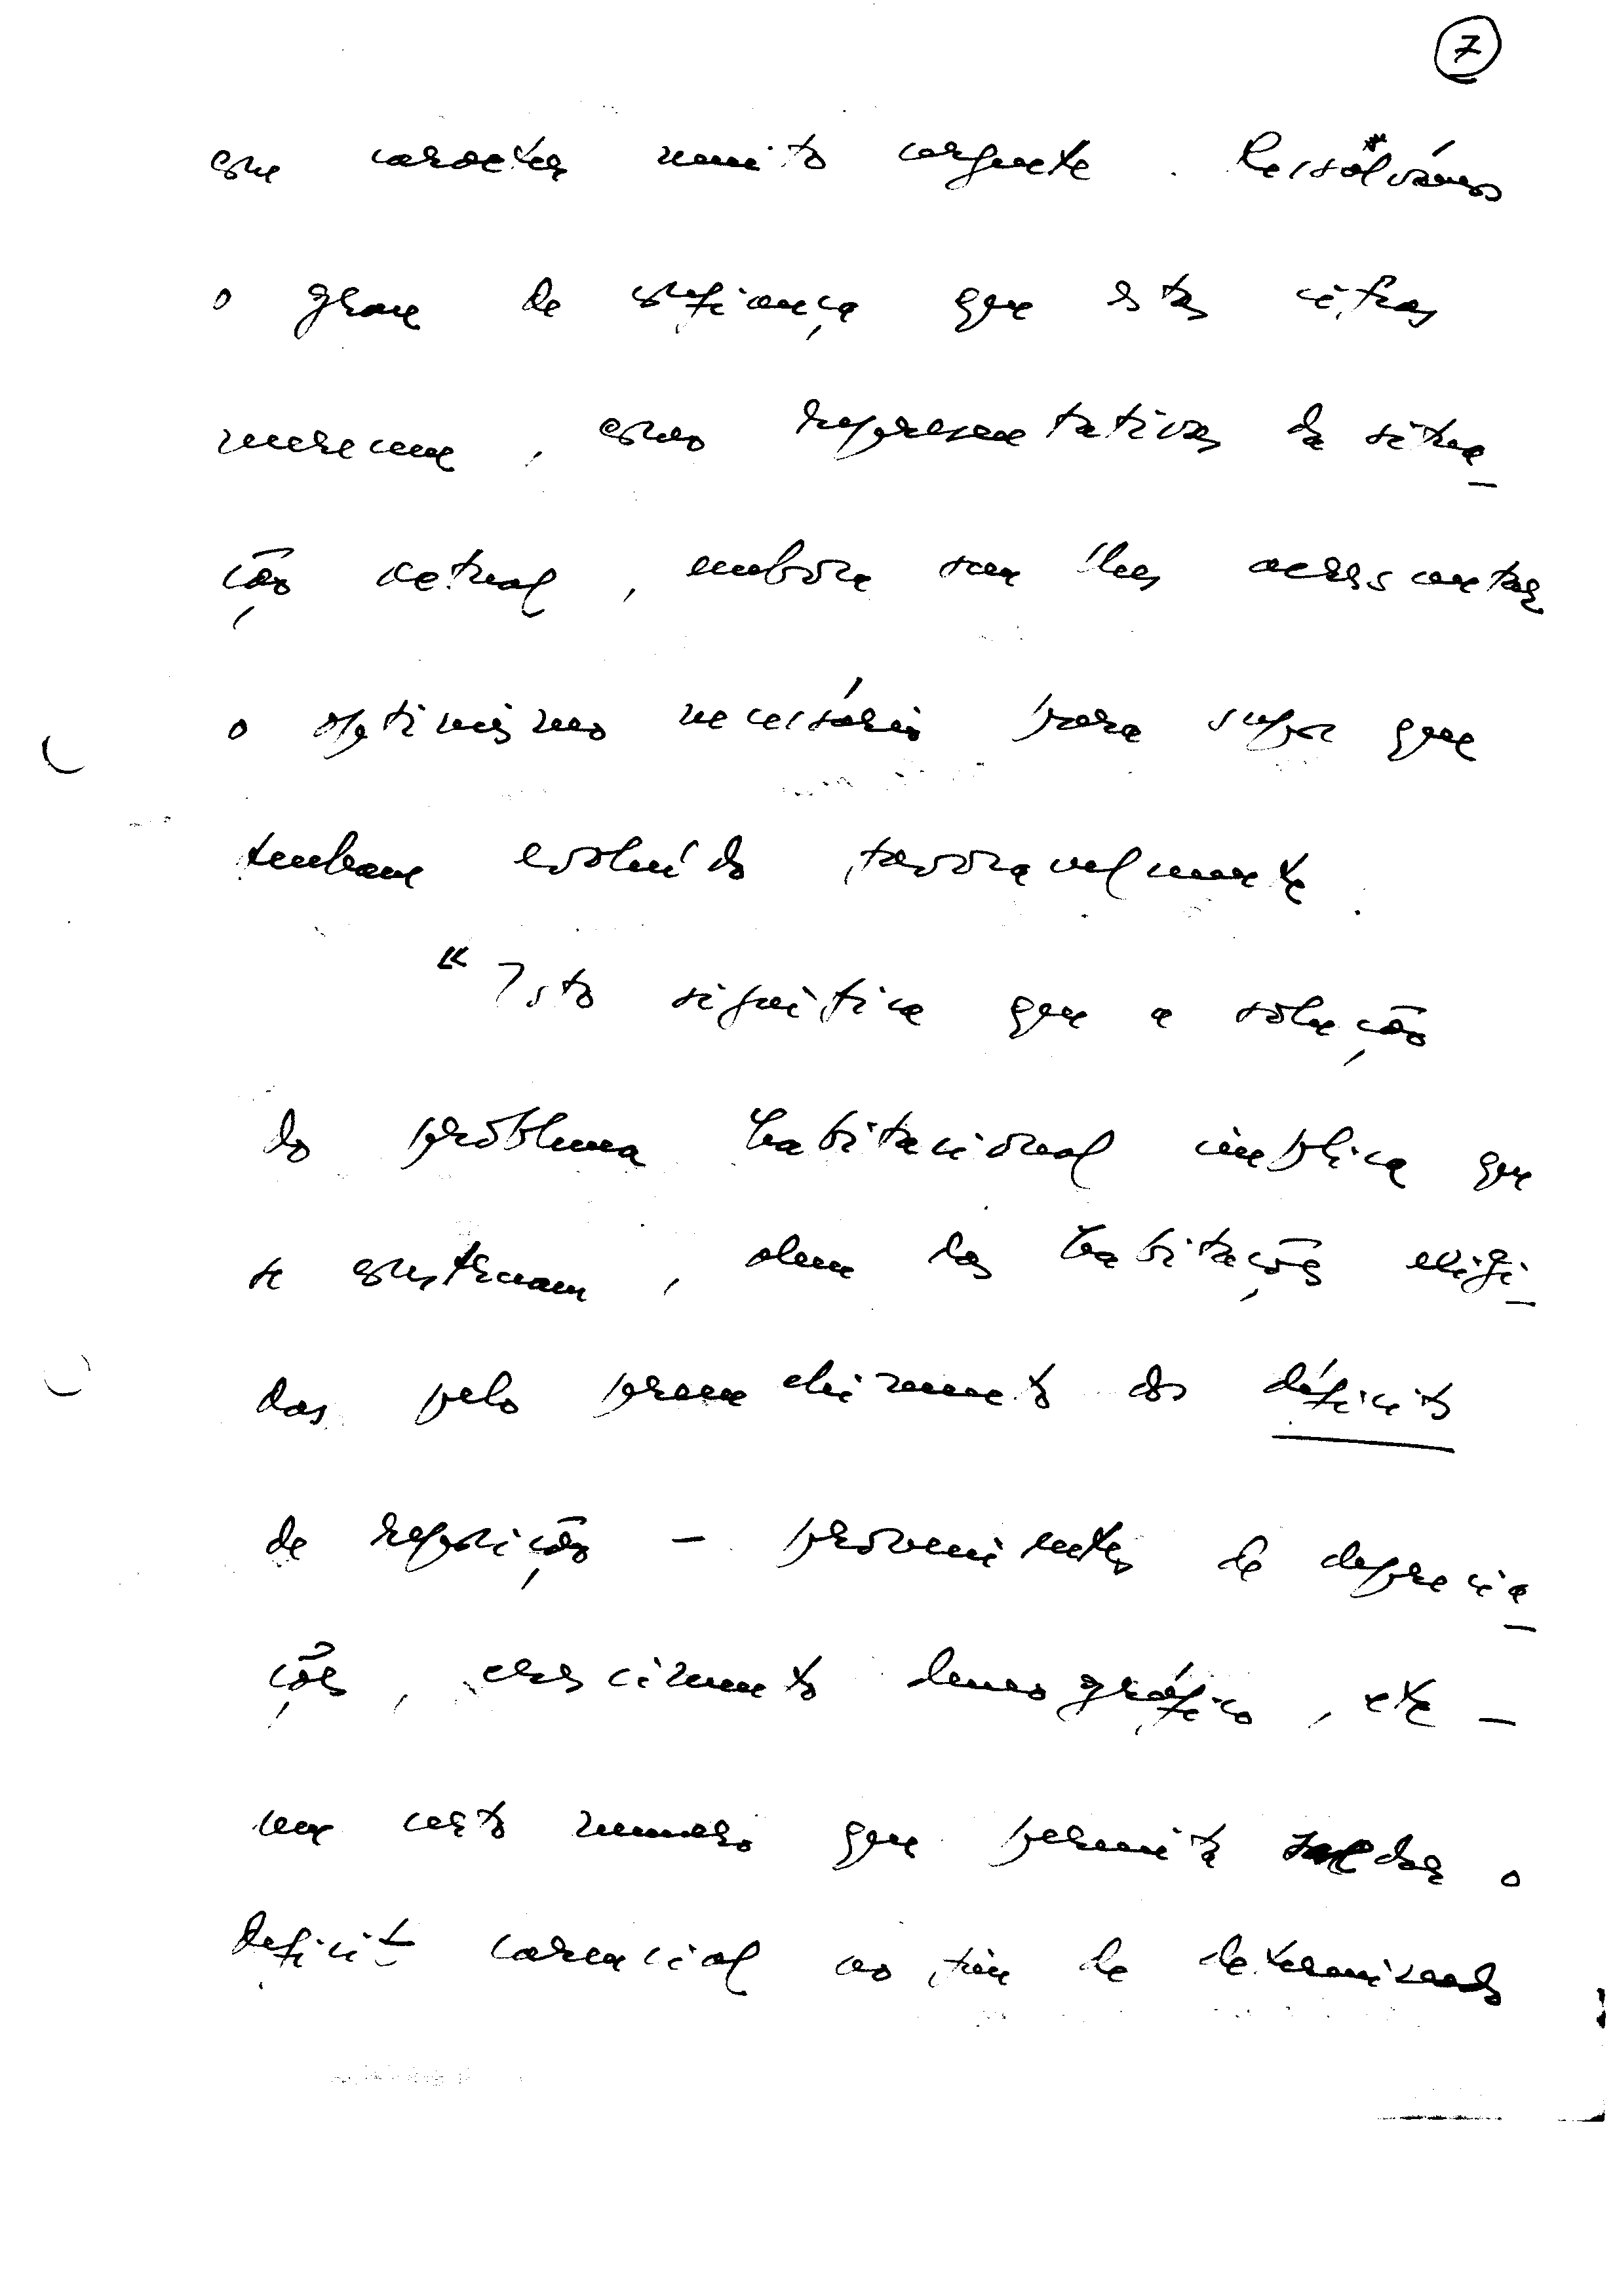 7
com caracter muito urgente. Ressalvamos
o grau de confiança que estas cifras
merecem, como representativas da situa-
ção actual, embora sem lhes acrescentar
o optimismo necessário para supor que
tenham evoluído favoravelmente.
"Isto significa que a solução
do problema habitacional implica que
se construam, alem das habitações exigi-
das pelo preenchimento dos déficits
de reposição - provenientes de deprecia-
ções, crescimento demográfico, etc -
um certo numero que permita saldar o
deficit carencial ao fim de determinado